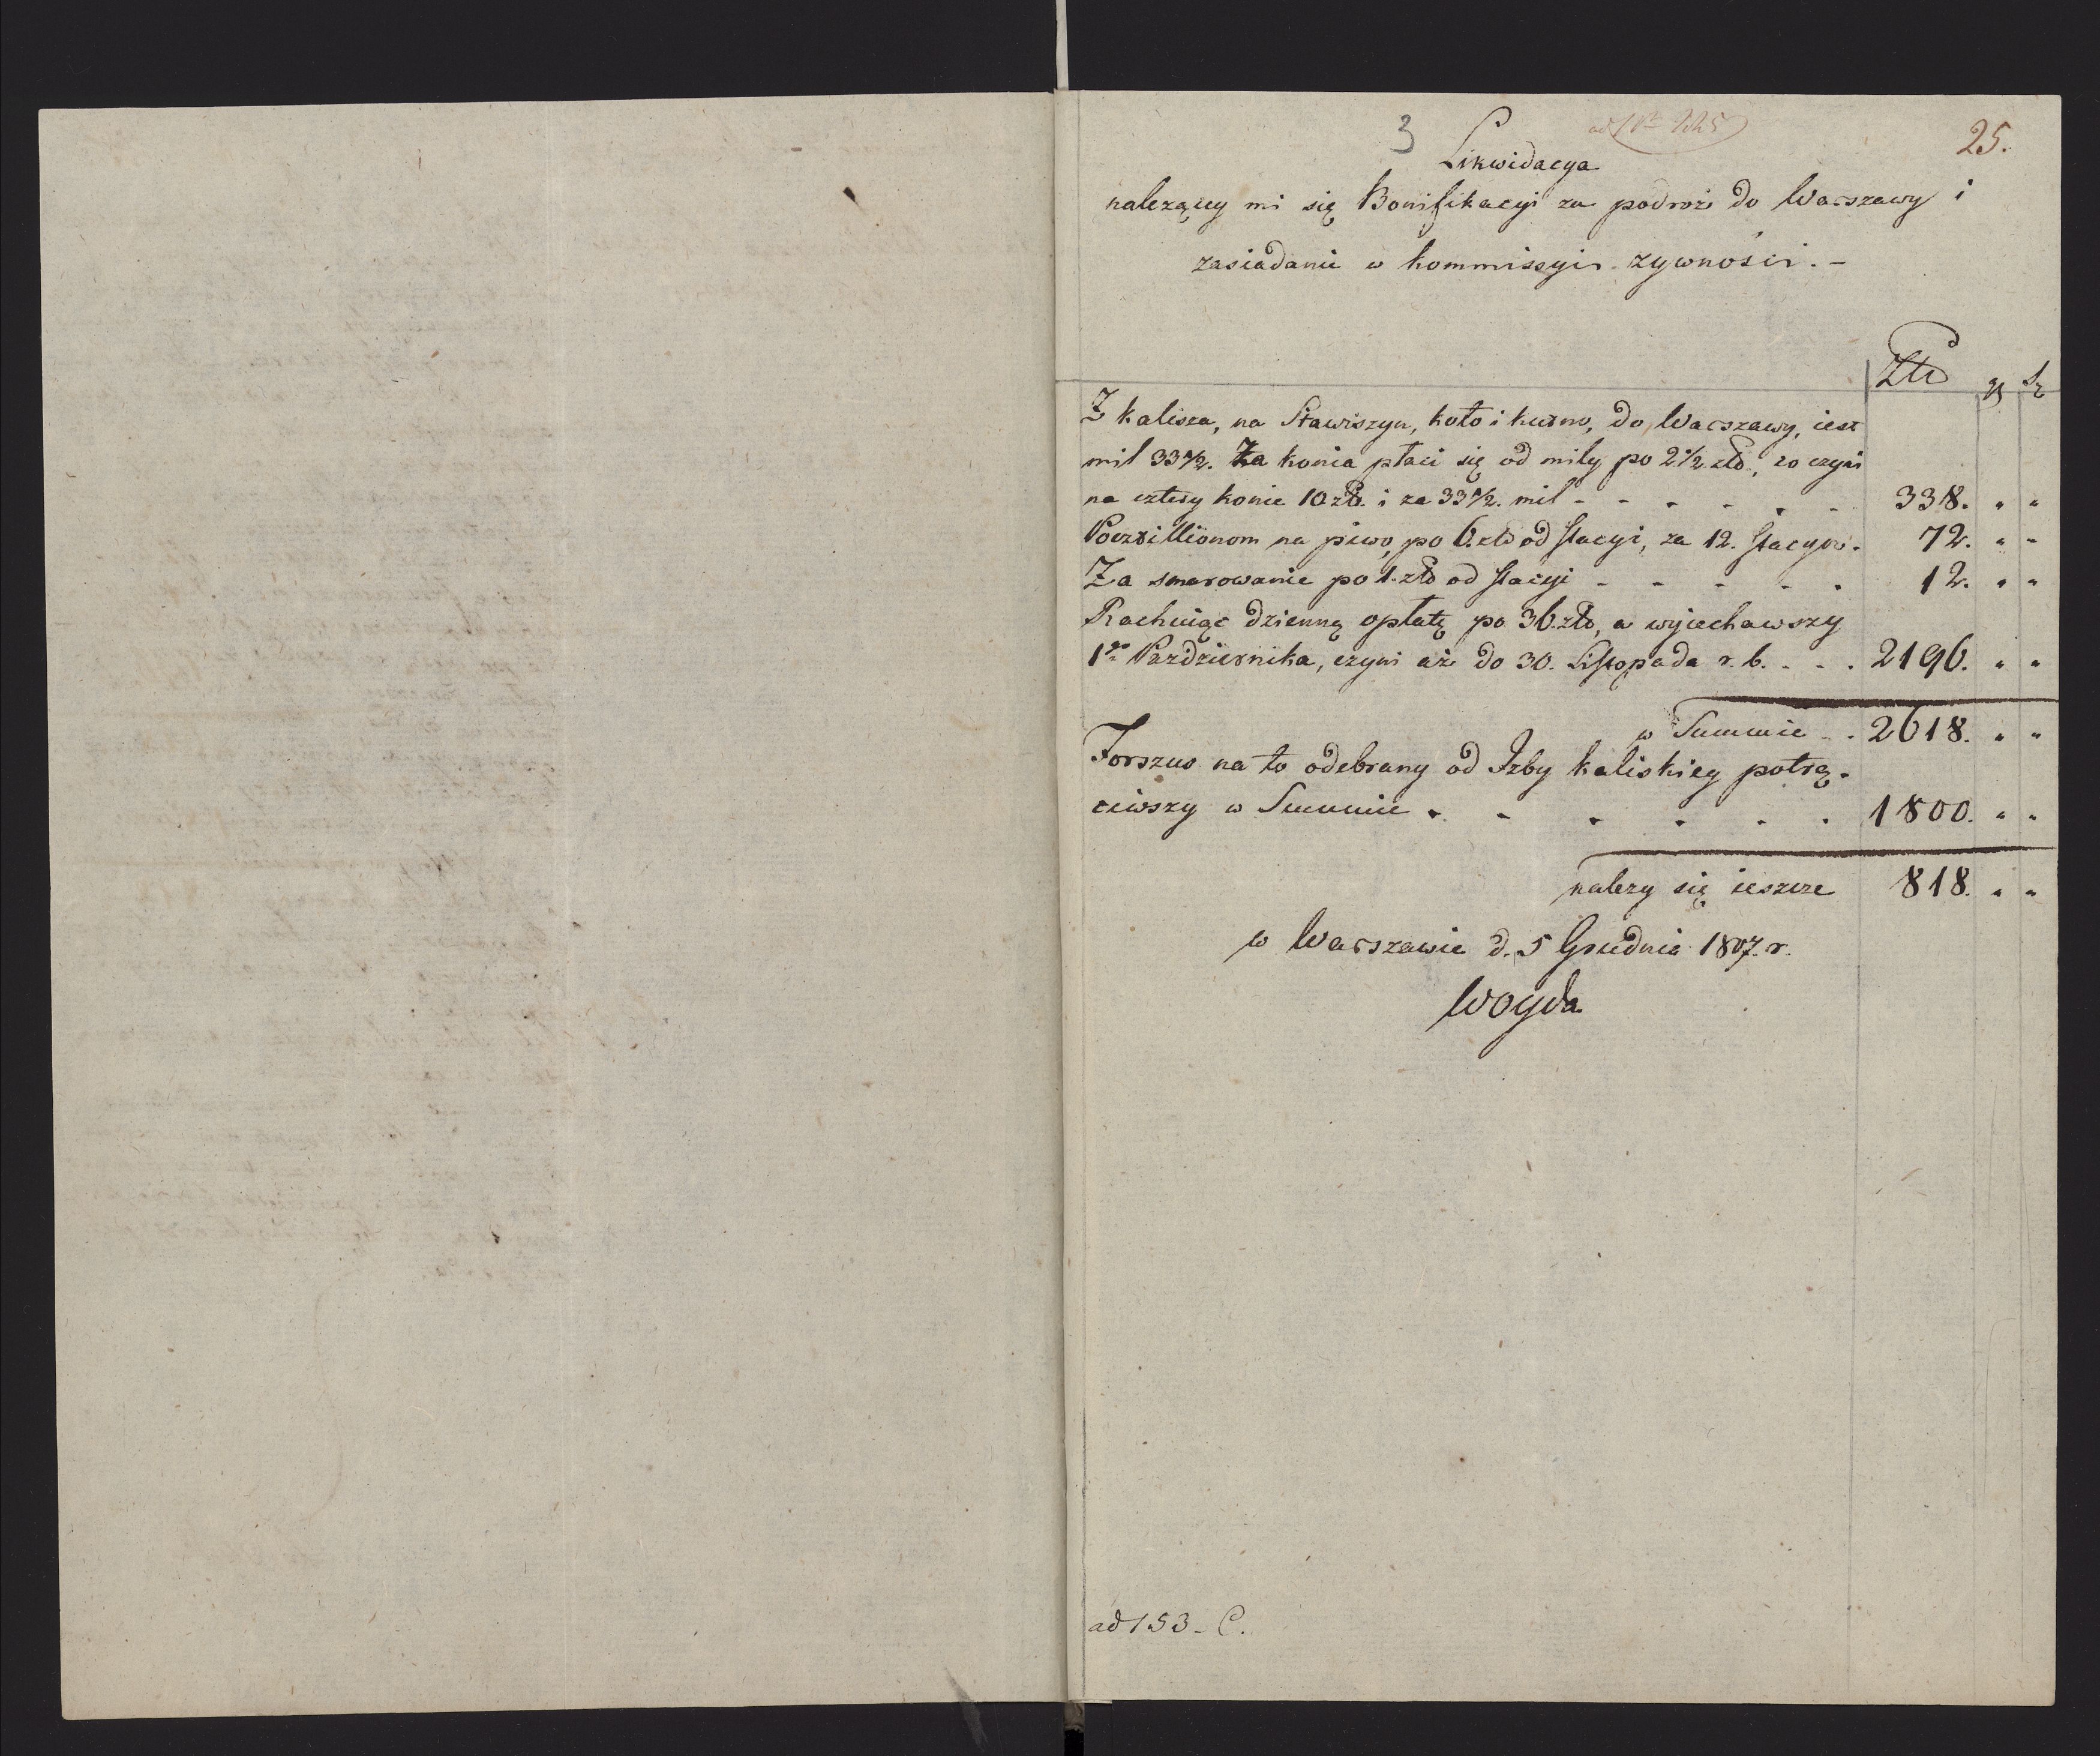 3
25.
Likwidacya
należącey mi się Bonifikacyi za podroż do Warszawy i
zasiadanie w Kommissyi żywności. -
Złł gr
Z Kalisza, na Stawiszyn, Koło i Kutno, do Warszawy, iest
mil 33 4/2. Za konia płaci się od mily po 2 1/2 złł., co czyni
na cztery konie 10 złł. i za 33 4/2. mil - - - - - - 338. " "
Pocztillionom na piwo po 6. złł od stacyi, za 12. stacyow. 72. " "
Za smarowanie po 1. złł od stacyi - - - - - 12. " "
Rachuiąc dzienną opłatę po 36. złł, a wyiechawszy
1go Pazdziernika, czyni aż do 30. Listopada r. b. - - . 2196. " "
w Summie - . 2618. " "
Forszus na to odebrany od Izby Kaliskiey potrą-
ciwszy w Summie . - . . . . 1800. " "
należy się ieszcze 818. " "
w Warszawie d. 5 Grudnia 1807. r.
Woyda
ad 153 - C.